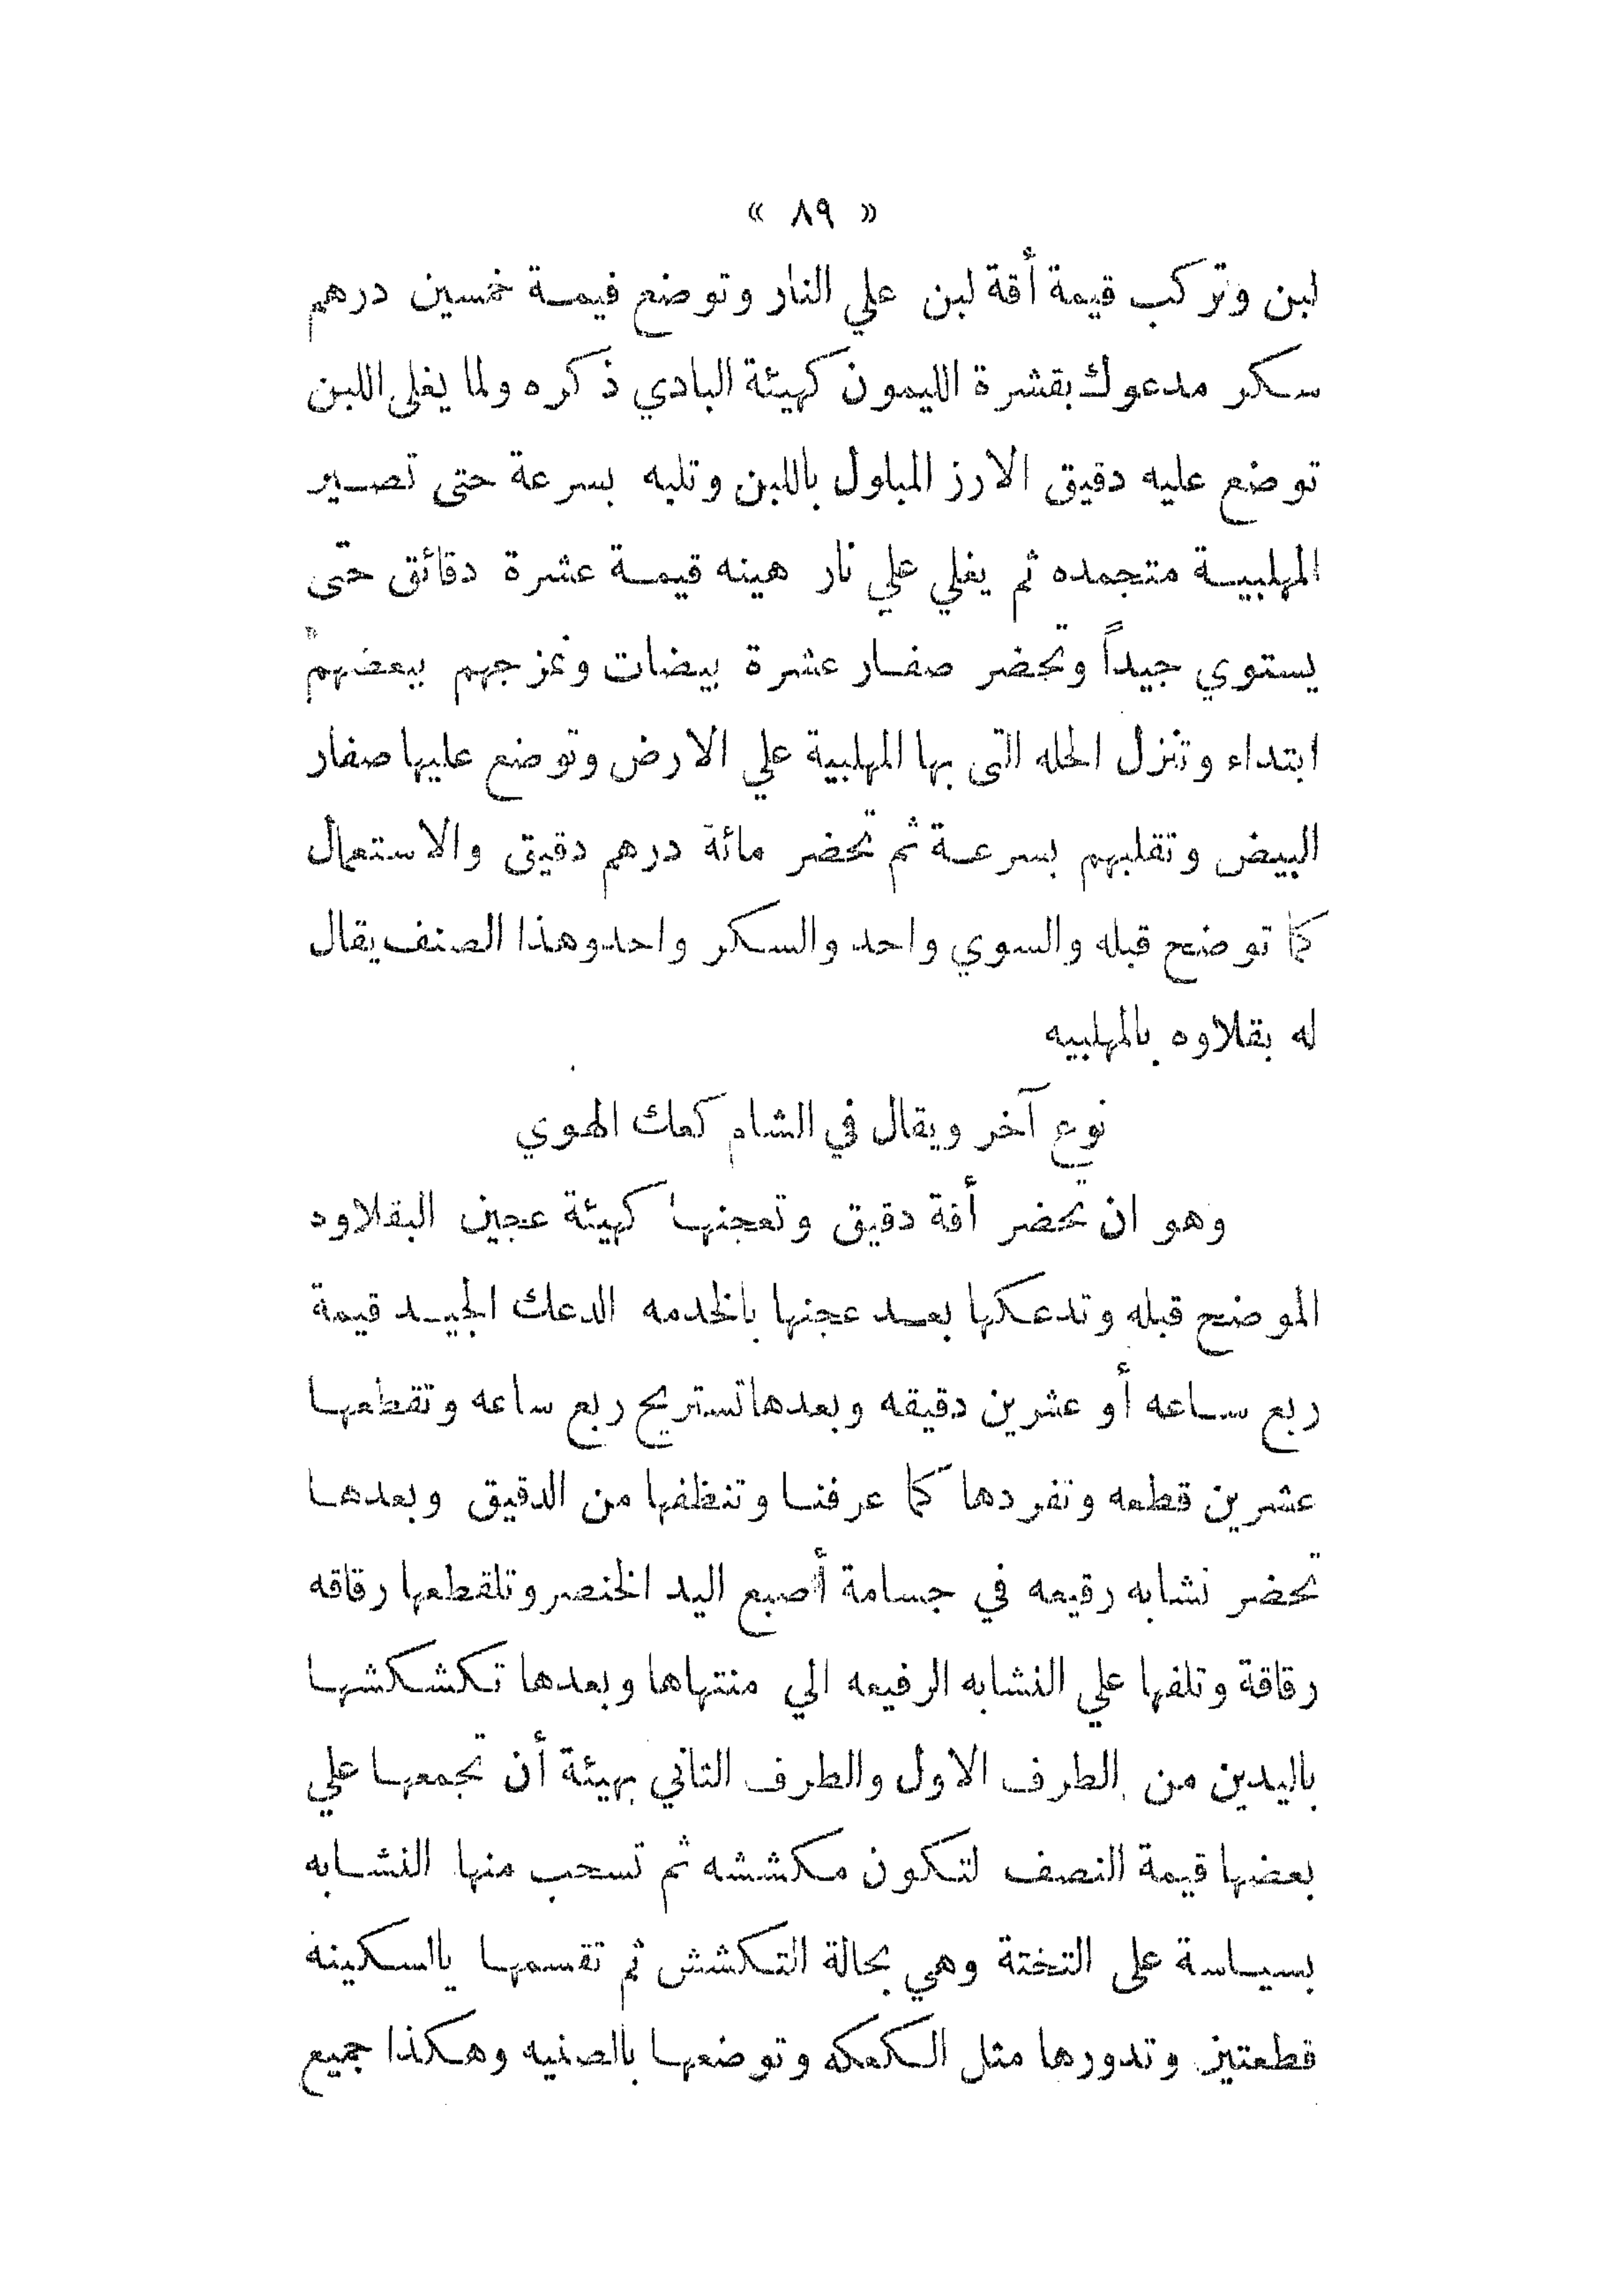 « ٨٩ »
لبن وتركب قيمة أقة لبن علي النار وتوضع قيمة خمسين درهم
سكر مدعوك بقشرة الليمون كهيئة البادي ذكره ولما يغلي اللبن
توضع عليه دقيق الارز المبلول باللبن وتلبه بسرعة حتى تصير
المهلبية متجمده ثم يغلي علي نار هينه قيمة عشرة دقائق حتى
يستوي جيداً وتحضر صفار عشرة بيضات وتمزجهم ببعضهم
ابتداء وتنزل الحله التى بها المهلبية علي الارض وتوضع عليها صفار
البيض وتقلبهم بسرعة ثم تحضر مائة درهم دقيق والاستعمال
كما توضح قبله والسوي واحد والسكر واحد وهذا الصنف يقال
له بقلاوه بالمهلبيه
نوع آخر ويقال في الشام كعك الهوي
وهو ان تحضر أقة دقيق وتعجنها كهيئة عجين البقلاوه
الموضح قبله وتدعكها بعد عجنها بالخدمه الدعك الجيد قيمة
ربع ساعه أو عشرين دقيقه وبعدها تستريح ربع ساعه وتقطعها
عشرين قطعه وتفردها كما عرفنا وتنظفها من الدقيق وبعدها
تحضر نشابه رفيعه في جسامة أصبع اليد الخنصر وتلقطعها رقاقه
رقاقة وتلفها علي النشابه الرفيعه الي منتهاها وبعدها تكشكشها
باليدين من الطرف الاول والطرف التاني بهيئة أن تجمعها علي
بعضها قيمة النصف لتكون مكششه ثم تسحب منها النشابه
بسياسة على التختة وهي بحالة التكشش ثم تقسمها بالسكينه
قطعتين وتدورها مثل الكعكه وتوضعها بالصنيه وهكذا جميع